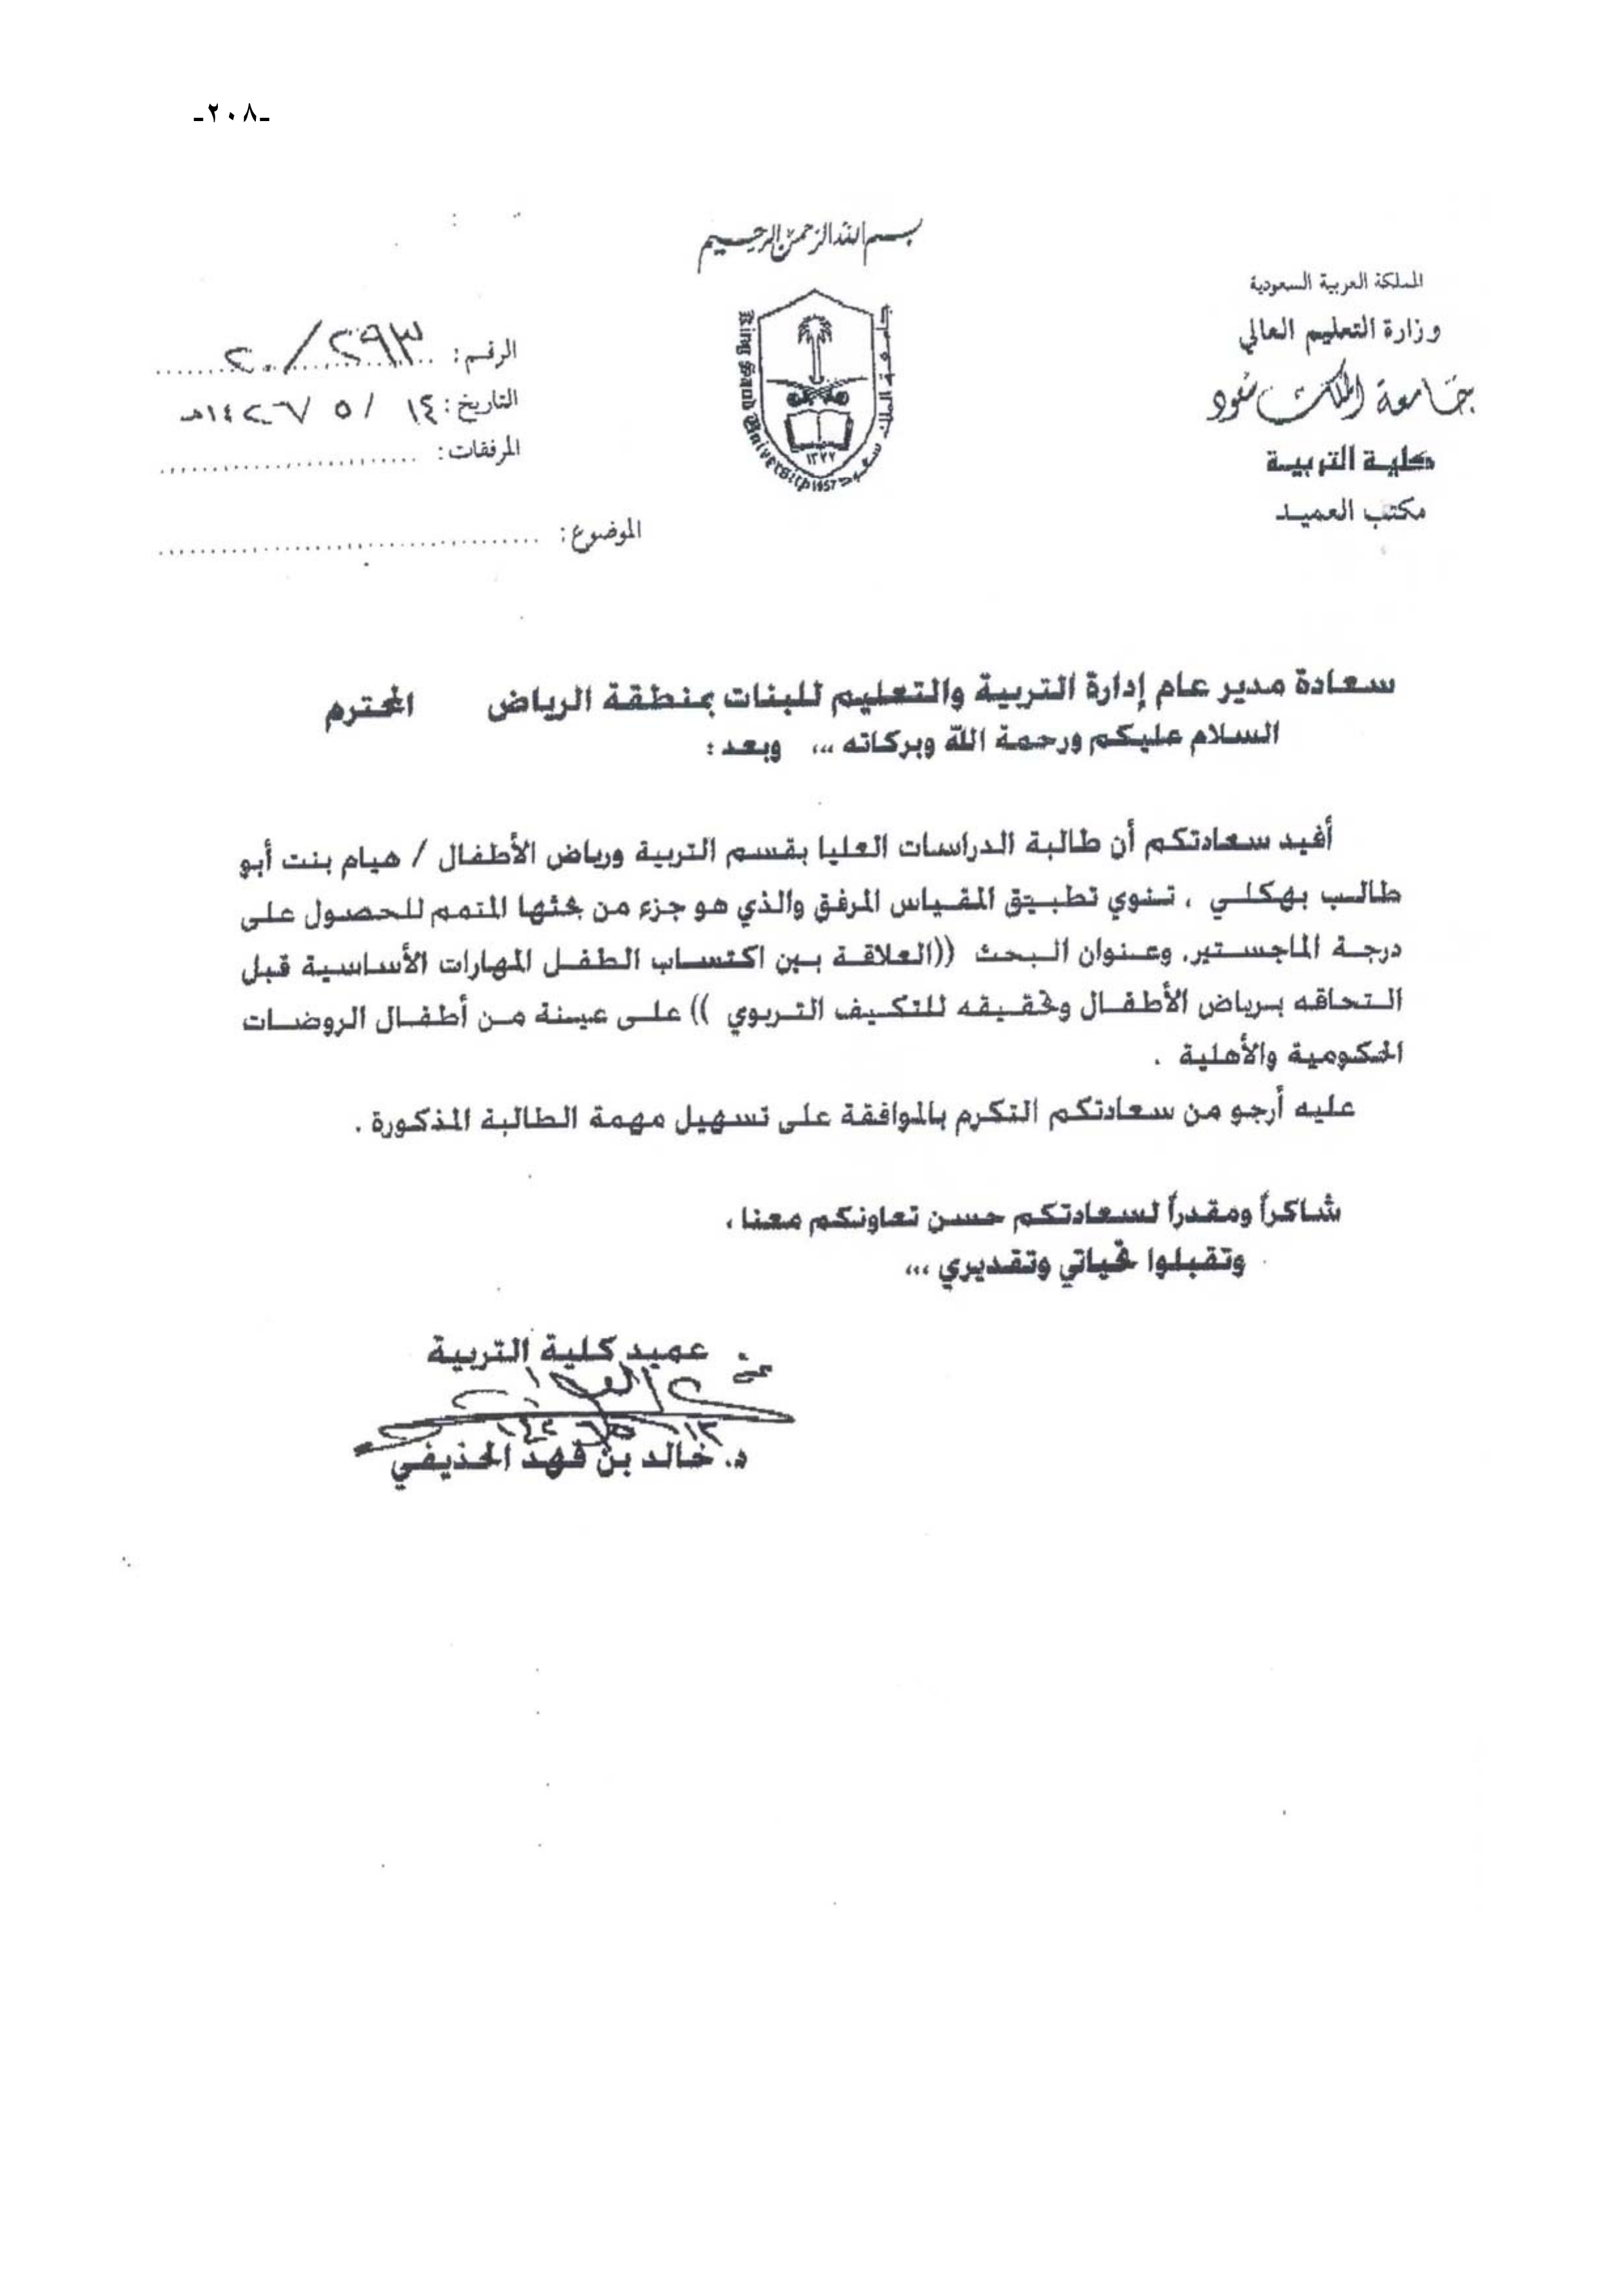 -٢٠٨-
بسم الله الرحمن الرحيم
المملكة العربية السعودية
وزارة التعليم العالي
جامعة الملك سعود
كلية التربية
مكتب العميد
جامعة الملك سعود
King Saud University
١٣٧٧
1957
الرقم: ٢٩٣/٢٠
التاريخ: ١٤/ ٥ /١٤٢٦هـ
المرفقات:
الموضوع:
سعادة مدير عام إدارة التربية والتعليم للبنات بمنطقة الرياض المحترم
السلام عليكم ورحمة الله وبركاته ،،، وبعد :
أفيد سعادتكم أن طالبة الدراسات العليا بقسم التربية ورياض الأطفال / هيام بنت أبو
طالب بهكلي ، تنوي تطبيق المقياس المرفق والذي هو جزء من بحثها المتمم للحصول على
درجة الماجستير، وعنوان البحث ((العلاقة بين اكتساب الطفل المهارات الأساسية قبل
التحاقه برياض الأطفال وتحقيقه للتكيف التربوي )) على عينة من أطفال الروضات
الحكومية والأهلية .
عليه أرجو من سعادتكم التكرم بالموافقة على تسهيل مهمة الطالبة المذكورة .
شاكراً ومقدراً لسعادتكم حسن تعاونكم معنا ،
وتقبلوا تحياتي وتقديري ،،،
عميد كلية التربية
د. خالد بن فهد الحذيفي